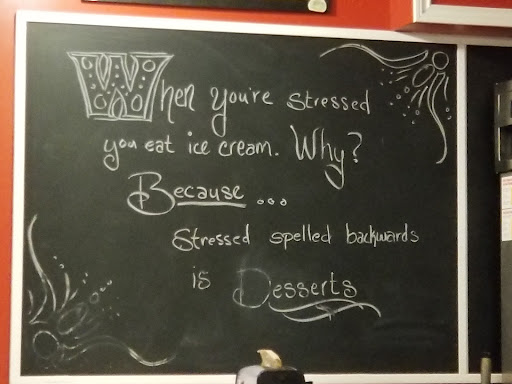 When you're stressed
you eat ice cream. Why?
Because...
Stressed spelled backwards
is Desserts